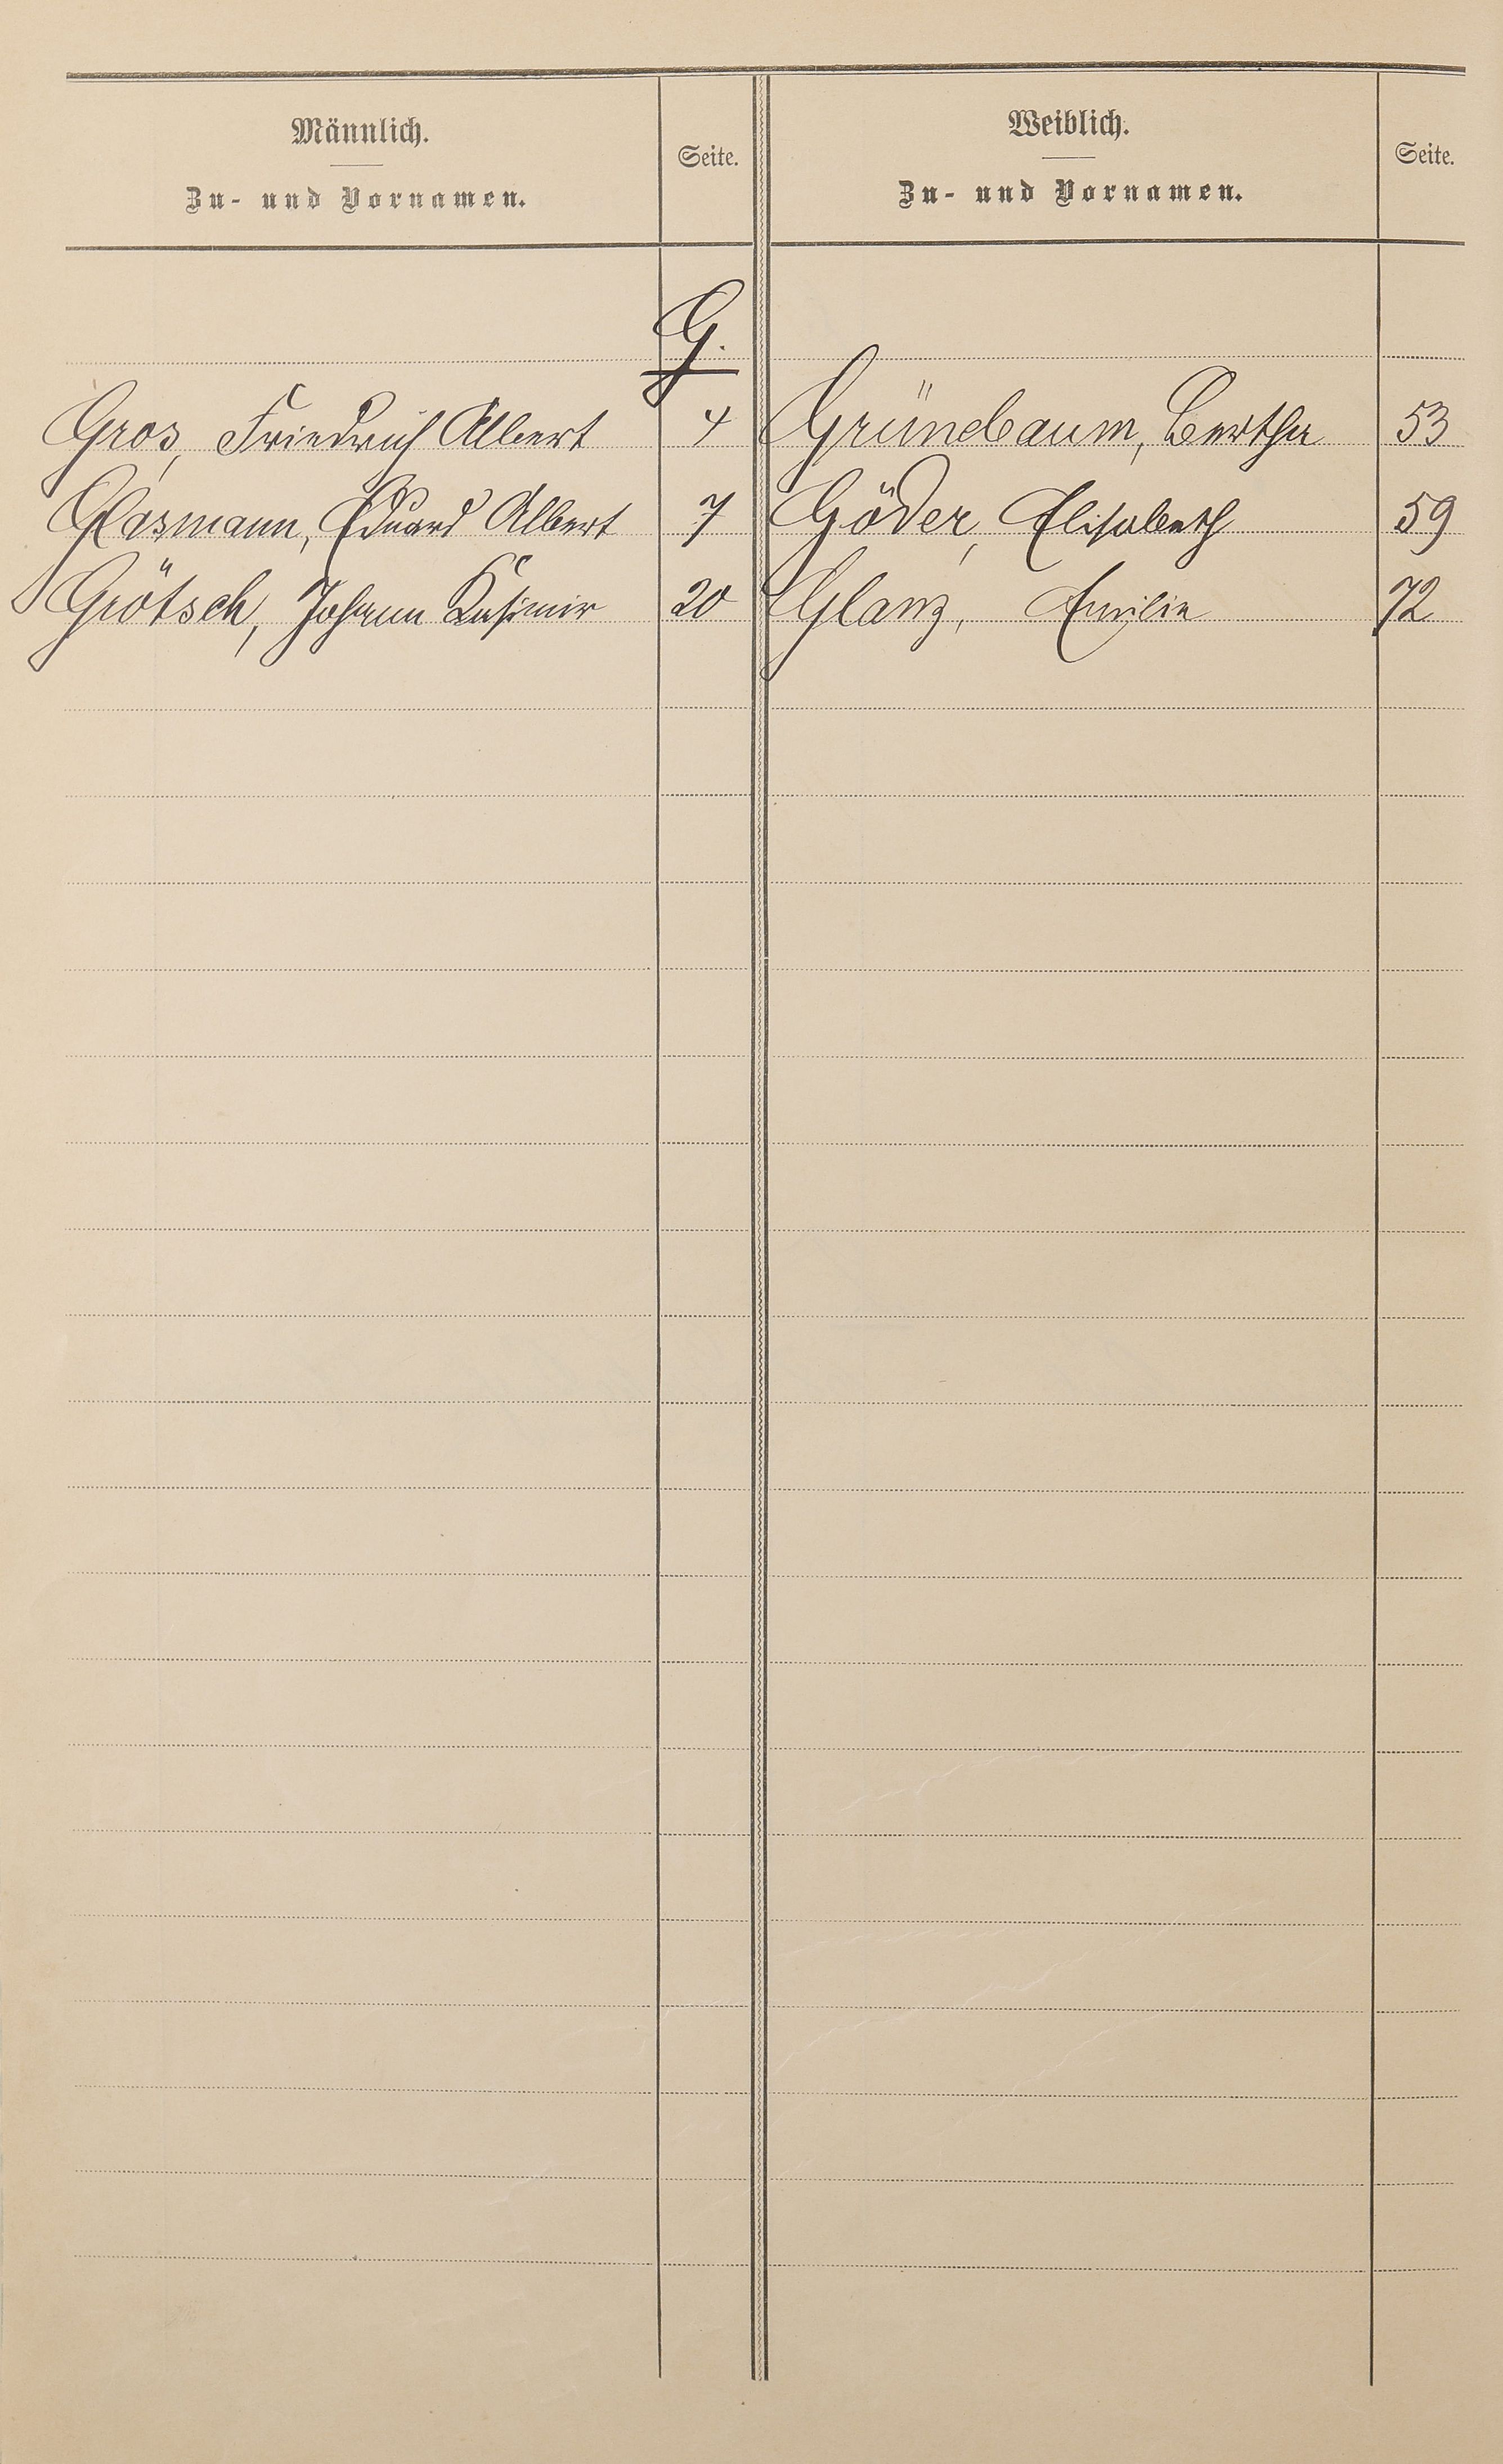 Männlich.
Zu- und Vornamen.
Seite.
Weiblich.
Zu- und Vornamen.
Seite.
G.
Gros, Friedrich Albert 4 Grünebaum, Bertha 53
Glasmann, Eduard Albert 7 Göder, Elisabeth 59
Grötsch, Johann Kasimir 20 Glanz, Emilie 72